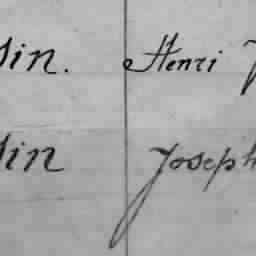 sin. Henri
sin Joseph